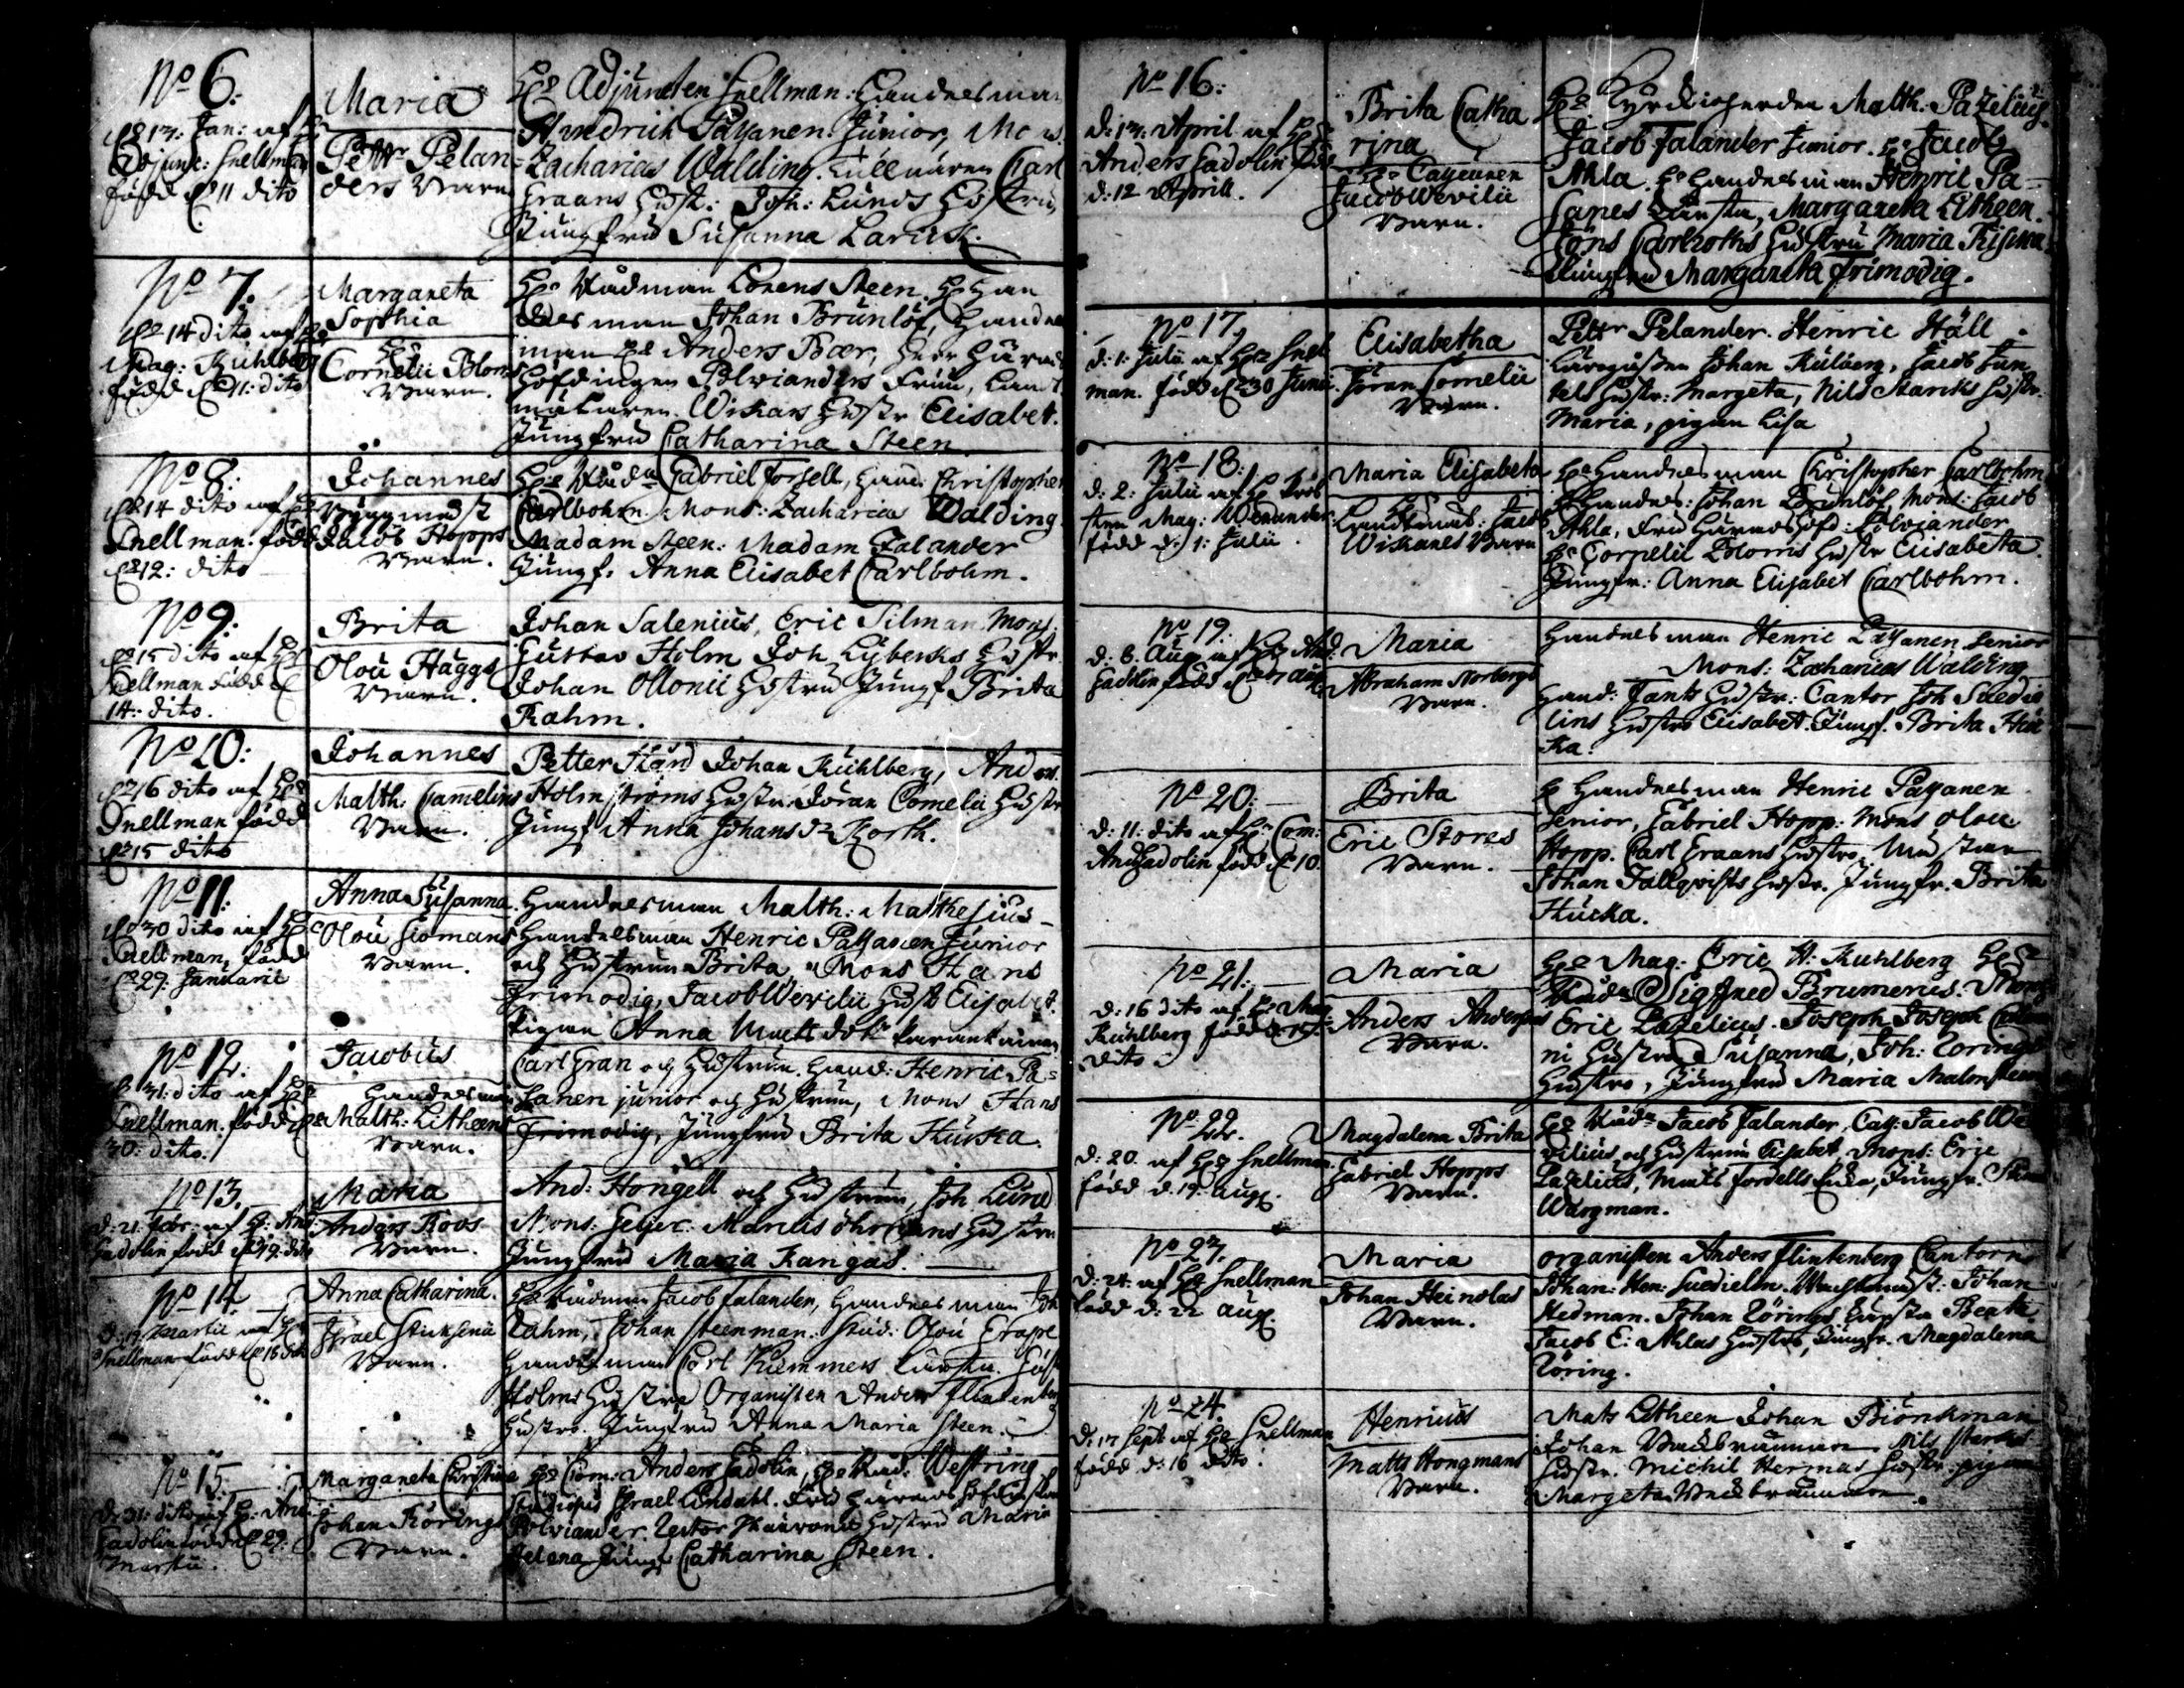 No 6:
d 13: Jan: af H
Adjunc: Snellman
född d 11 dito
Maria
Pettr Pelan
ders Barn
Hr Adjuncten Snellman: Handelsman
Hendrich Payanen Junior, Mons.
Zacharias Walding. Carl
Graans Hust: Joh: Lunds Hustru
Jungfru Susanna Lariek.
No 7:
d 14 dito af Hr
Mag: Kuhlberg
född d 11: dito
Margareta
Sophia
Hr
Cornelii Blom
Barn.
Hr Rådman Lorens Steen. Hr Han
delsman Johan Brunlöf, Handels
man Hr Anders Bær, Härads
höfdingen Polvianders Fru, Landt
mätaren Wikars Hustr Elisabet.
Jungfru Catharina Steen
No 8:
d 14 dito af Hr
Snellman. född
d 12: dito
Johannes
Jacob Hopps
Barn.
Hr Rådm Gabriel Forsell, Hand: Christopher
Carlbohm. Mons: Zacharias Walding
Madam Steen: Madam Falander
Jungf: Anna Elisabet Carlbohm.
No 9:
d 15 dito af Hr
Snellman född d
14: dito.
Brita
Olou Häggs
Barn.
Johan Salenius, Eric Silman. Mons:
Gustav Holm Joh Lyberks Hustr.
Johan Ollonii Hustru Jungf Brita
Rahm.
No 10:
d 16 dito af Hr
Snellman född
d 15 dito
Johannes
Matth: Camelins
Barn.
Petter Hård Johan Kuhlberg, Anders
Holmströms Hustru: Jöran Cornelii Hustr
Jungf Anna Johansdr Korth.
No 11:
d 30 dito af Hr
Snellman, född
d 29: Januarii
Anna Susanna
Olou Siomans
Barn.
Handelsman Matth: Mathesius
Handelsman Henric Payanen Junior
och Hustrun Brita, Mons Hans
Frimodig, Jacob Wevilii Hust Elisabet.
Pigan Anna Matts dotr
No 12.
d 31: dito af Hr
Snellman. född d
30: dito.
Jacobus
Handelsman
Matth: Litheens
Barn.
Carl Gran och Hustrun. Hand: Henric Pa=
yanen junior och Hustrun, Mons Hans
Frimodig, Jungfru Brita Kurska
No 13.
d: 21. Febr: af H: And:
Gadolin född d 19. dito
Maria
Anders Roos
Barn.
And: Hongell och Hustrun, Joh Lund
Mons: Geijer. Marcus Hustru
Jungfru Maria Kangas.
No 14
d: 17 Martii af Hr
Snellman född d 16 dito
Anna Catharina.
Israel Stichsenii
Barn.
Hr Rådman Jacob Falander, Handelsman Joh
Rahm, Johan Steenman. Stud: Olou
Handelsman Carl
Holms Hustru Organisten Anders Flintenberg
Hustro. Jungfru Anna Maria Steen.
No 15:
d: 31: dito af H: And:
Gadolin född d 29:
Martii.
Margareta Christina
Johan Körings
Barn.
Hr Com: Anders Gadolin, Hr Råd: Westring
Studiosus Israel Lindahl. Fru Häradshöfdingskan
Polviander. Hustru Maria
Helena Jungf Catharina Steen.
No 16:
d: 13: April af Hr
Anders Gadolin född
d: 12 Aprill.
Brita Catha
rina
Hr Capellanen
Jacob Wevilii
Barn.
Hr Kyrckioherden Matth: Pazelius.
Jacob Falander Junior. Hr Jacob
Ahla. Hr Handelsman Henric Pa=
yanes Enka, Margareta Litheen.
Jöns Carlboms Hustru Maria
Jungfru Margareta Frimodig.
No 17
d: 1: Julii af Hr Snell
man. född d 30 Junii.
Elisabetha
Jöran Cornelii
Barn.
Pettr Pelander. Henric Häll.
Johan Kulberg, Jacob Jun
kels Hustr: Margeta, Nils Starcks Hustr.
Maria, pigan Lisa
No 18:
d: 2: Julii af Hr
Mag: Wenander
född d: 1: Julii.
Maria Elisabeta
Jacob
Wikanes Barn
Hr Handelsman Christopher Carlbohm
Hr Handels: Johan Brunlöf Mons: Jacob
Ahla, Fru Häradshöfd: Polviander
Hr Cornelii Bloms Hustr Elisabeta
Jungfr: Anna Elisabet Carlbohm.
No 19:
d: 8. Aug af Hr And:
Gadolin född d 7 Aug
Maria
Abraham Norbergs
Barn.
Handelsman Henric Payanen Senior
Mons: Zacharias Walding
Hand: Fants Hustr: Cantor Joh Suedie
lins Hustro Elisabet. Jungf. Brita Hu
ka.
No 20:
d: 11: dito af Hr Com:
And Gadolin född d 10.
Brita
Eric Stores
Barn.
Hr Handelsman Henric Payanen
Senior, Gabriel Hopp. Mons Olou
Hopp. Carl Graans Hustro.
Johan Fallqvists Hustr. Jungfr. Brita
Kurka.
No 21:
d: 16 dito af Hr Mag
Kuhlberg född d 15
dito:
Maria
Anders Andersons
Barn.
Hr Mag: Eric H: Kuhlberg Hr
Rådm Sigfred Brumerus. Mons
Eric Pazelius. Joseph Joseph
ni Hustro Susanna, Joh: Törings
Hustro, Jungfru Maria Malmsteen
No 22.
d: 20. af Hr Snellman
född d. 19. Aug.
Magdalena Brita
Gabriel Hopps
Barn.
Hr Rådm Jacob Falander, Cap: Jacob We
vilius, och Hustrun Elisabet. Mons: Eric
Pazelius, Matts Fordells Enka, Jungfr.
Wargman.
No 23.
d: 24. af Hr Snellman
född d: 22 Aug.
Maria
Johan Heinolas
Barn.
Organisten Anders Flintenberg Cantorn
Johan: Hen: Suedielin. Johan
Hedman. Johan Törings Hustro Beata
Jacob E: Ahlas Hustro, Jungfr. Magdalena
Töring.
No 24
d: 17 Sept af Hr Snellman
född d: 16 dito.
Henricus
Matts Hongmans
Barn.
Mats Litheen Johan Biörkman
Johan Nils Starks
Hustr. Michil Hermas Hustr. pigan
Margeta